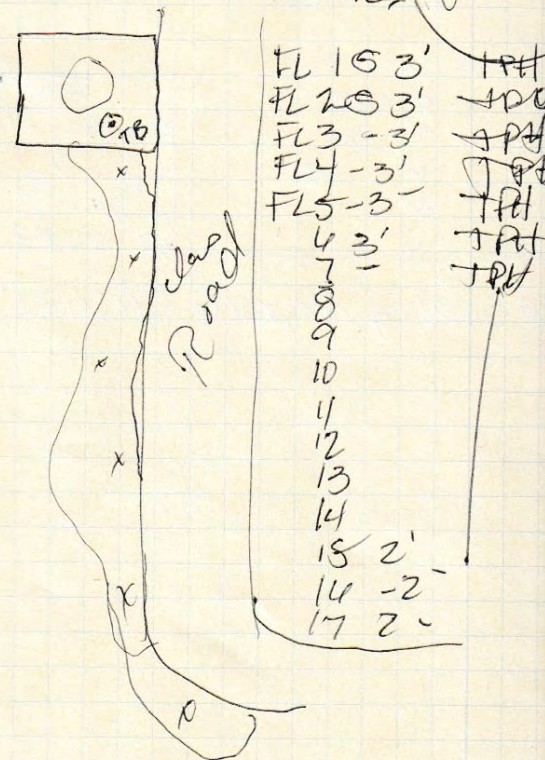 TB
Road
FL 1 @ 3' TPH
FL 2 @ 3' TPH
FL3 -3' TPH
FL4 -3' TPH
FL5 -3' TPH
6 3' TPH
7 - TPH
8
9
10
11
12
13
14
15 2'
16 -2'
17 2'